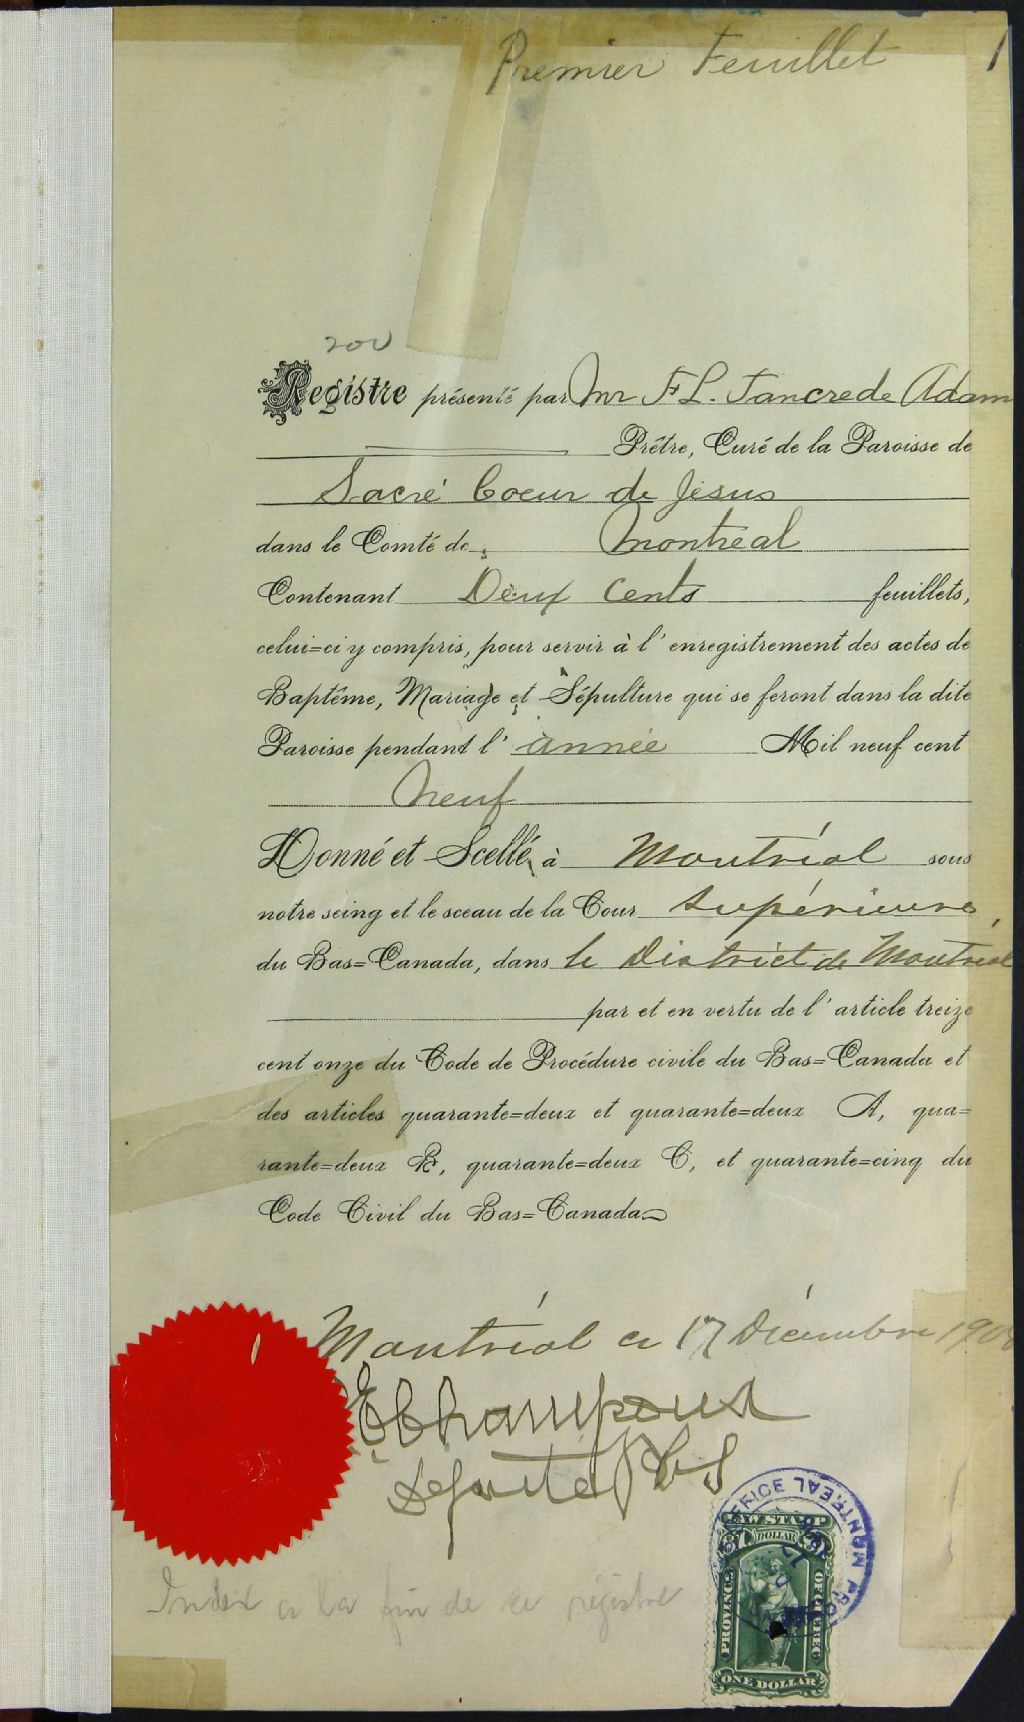 Premier Feuillet 1
200
Registre présenté par Mr F L. Tancrede Adam
Prêtre, Curé de la Paroisse de
Sacré Coeur de Jésus
dans le Comté de Montreal
Contenant Deux Cents feuillets,
celui=ci y compris, pour servir à l'enregistrement des actes de
Baptême, Mariage et Sépulture qui se feront dans la dite
Paroisse pendant l'année Mil neuf cent
neuf
Donné et Scellé à Montréal sous
notre seing et le sceau de la Cour Supérieure,
du Bas=Canada, dans le District de Montréal
par et en vertu de l'article treize
cent onze du Code de Procédure civile du Bas=Canada et
des articles quarante=deux et quarante=deux A, qua=
rante=deux B, quarante=deux C, et quarante=cinq du
Code Civil du Bas=Canada
Montréal ce 17 Décembre 1908
Député P C S
OFFICE MONTREAL
LAW STAMP
1 DOLLAR
PROVINCE OF QUEBEC
ONE DOLLAR
Index a la fin de ce régistre